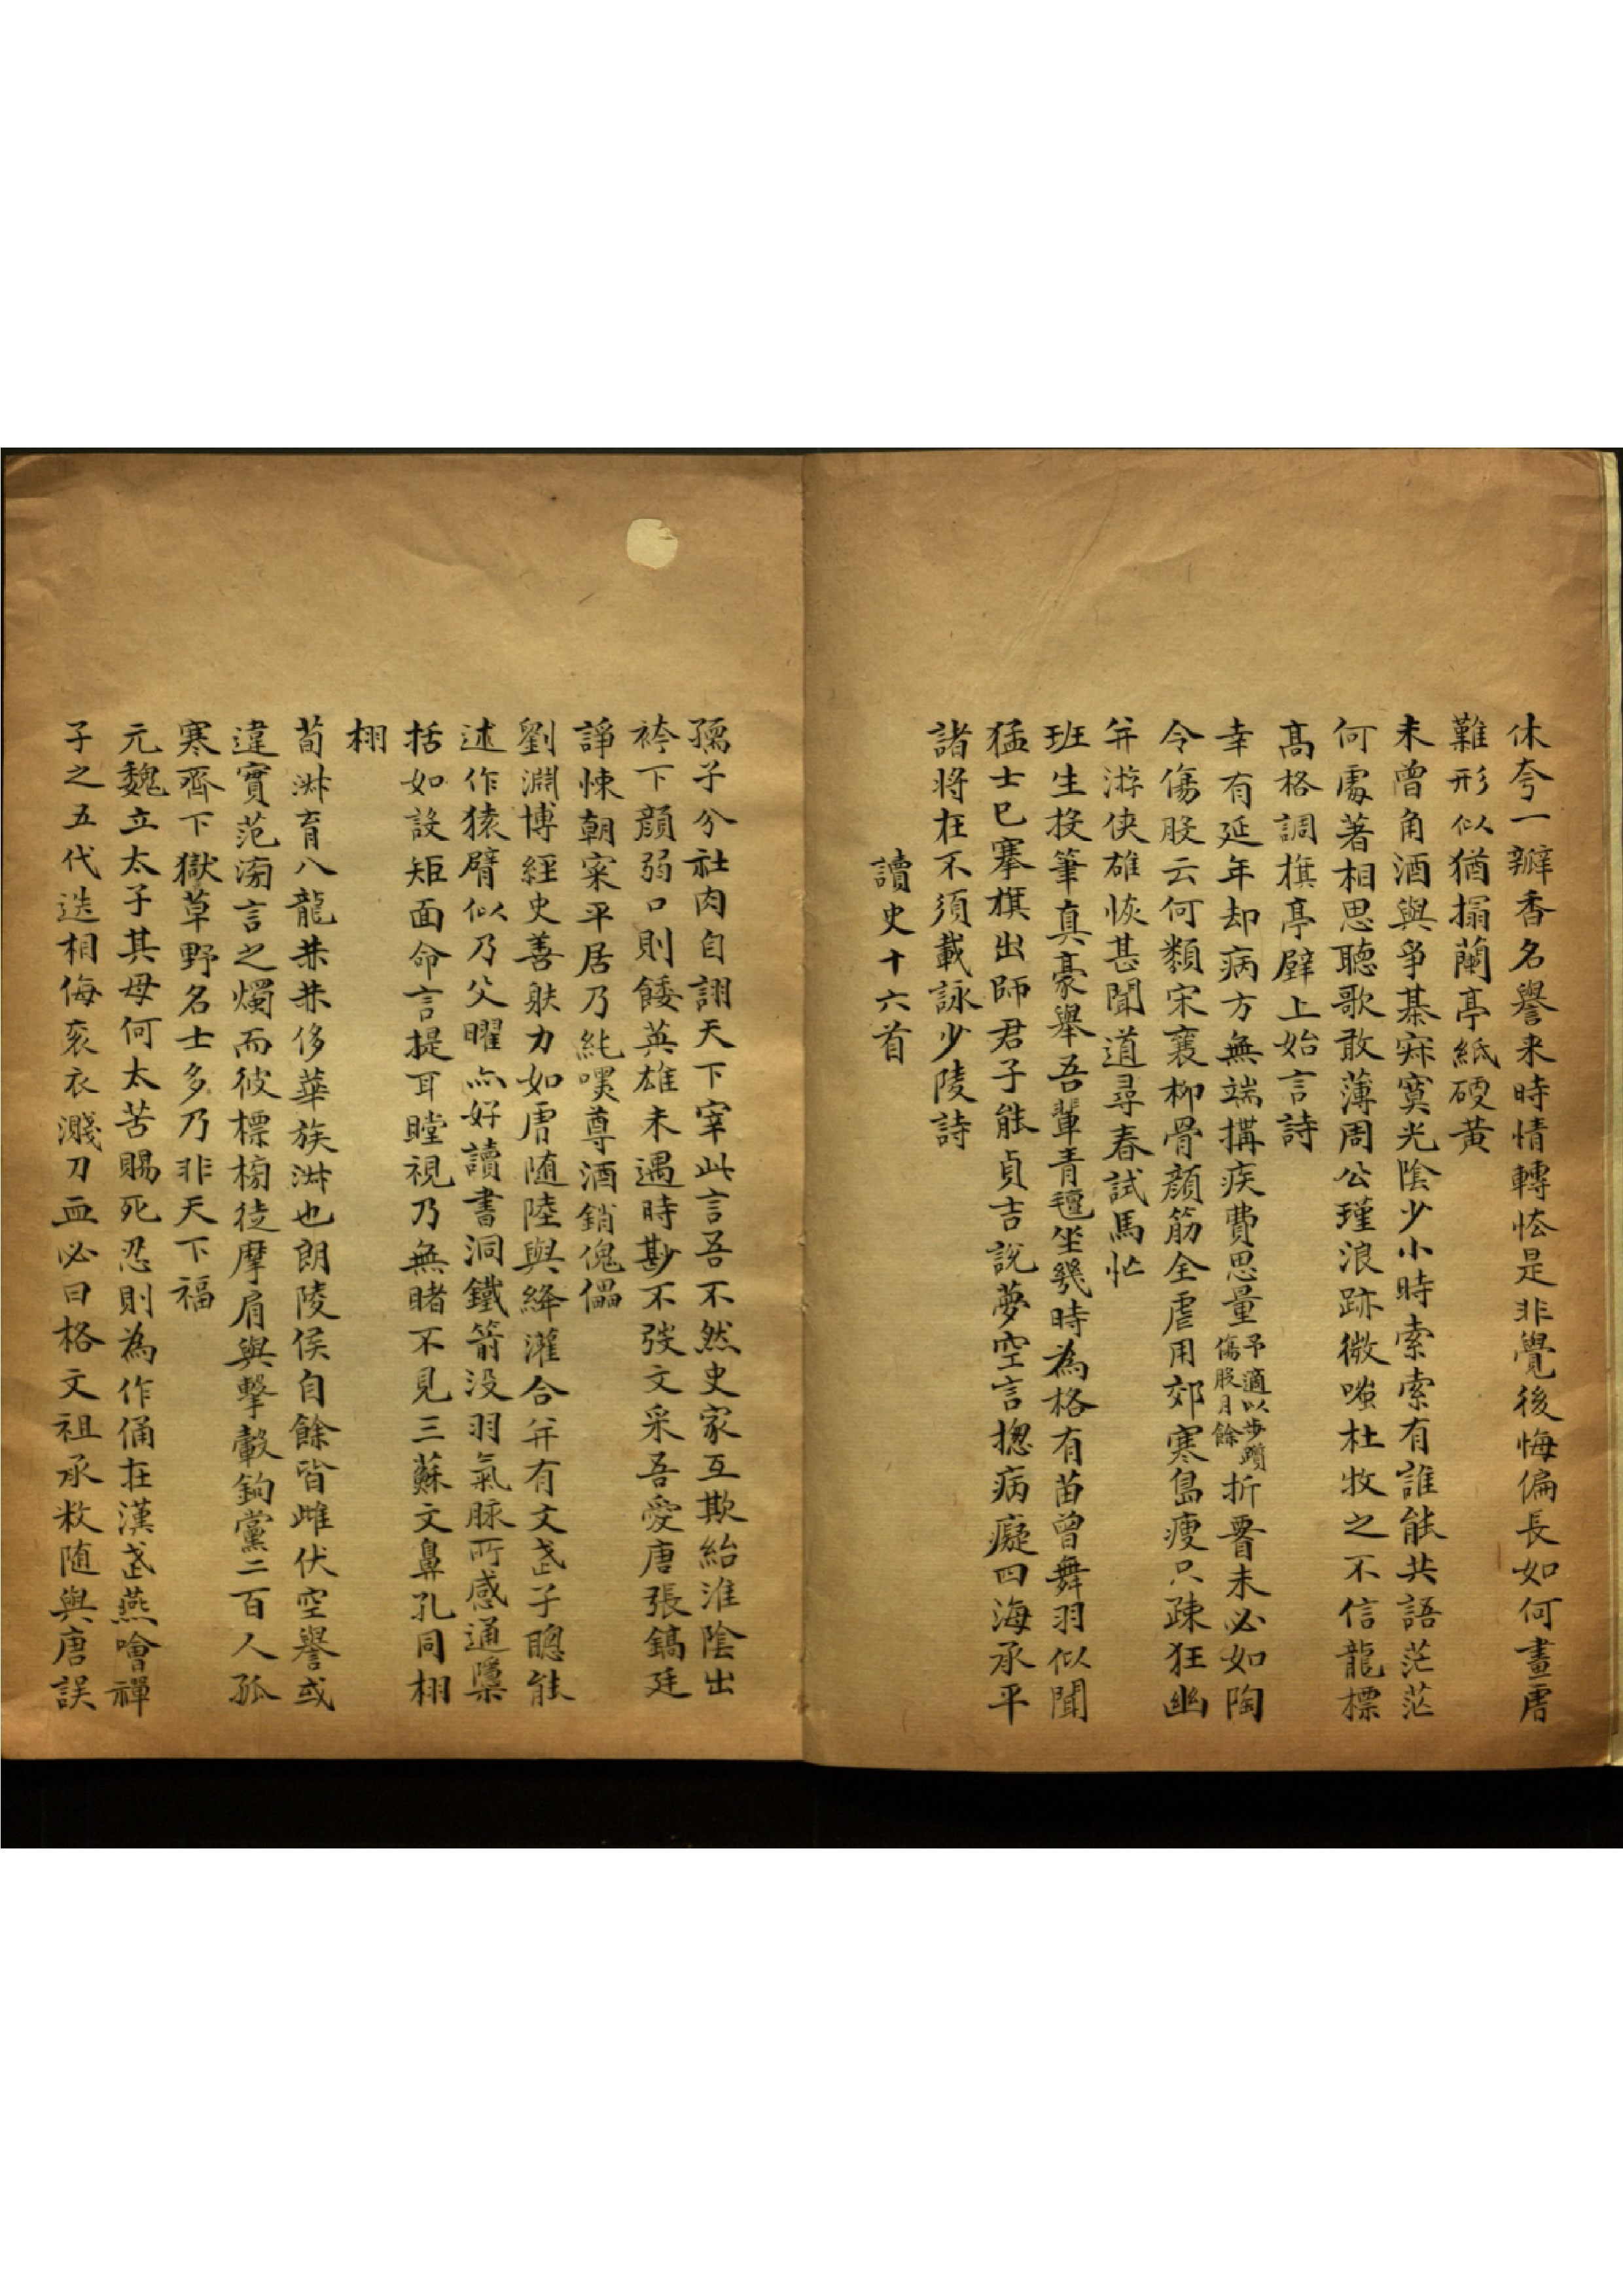 休夸一瓣香名譽来時情轉恡是非覺後悔偏長如何畫虎
難形似猶搨蘭亭紙硬黃
未曾角酒與爭棊寂寞光陰少小時索索有誰能共語茫茫
何處著相思聽歌敢薄周公瑾浪跡微嗤杜牧之不信龍標
高格調旗亭壁上始言詩
幸有延年却病方無端搆疾費思量予適以步躓傷股月餘折臂未必如陶
令傷股云何類宋襄柳骨顏筋全虐用郊寒島瘦只疎狂幽
并游俠雄恢甚聞道尋春試馬忙
班生投筆真豪舉吾輩青氊坐幾時為格有苗曾舞羽似聞
猛士已搴旗出師君子能貞吉說夢空言揔病癡四海承平
諸將在不須載詠少陵詩
讀史十六首
孺子分社肉自詡天下宰此言吾不然史家互欺紿淮陰出
袴下顏弱口則餧英雄未遇時尠不發文采吾愛唐張鎬廷
諍悚朝寀平居乃純嘿尊酒銷傀儡
劉淵博經史善射力如虎随陸與絳灌合并有文武子聰能
述作猿臂似乃父曜亦好讀書洞鐵箭没羽氣脉所感通櫽
括如設矩面命言提耳瞠視乃無睹不見三蘇文鼻孔同栩
栩
荀淑育八龍恭恭侈華族淑也朗陵侯自餘皆雌伏空譽或
違實范滂言之燭而彼標榜徒摩肩與擊轂鉤黨二百人孤
寒齊下獄草野名士多乃非天下福
元魏立太子其母何太苦賜死忍則為作俑在漢武燕噲禪
子之五代迭相侮袞衣濺刀血必曰格文祖承敉随與唐誤